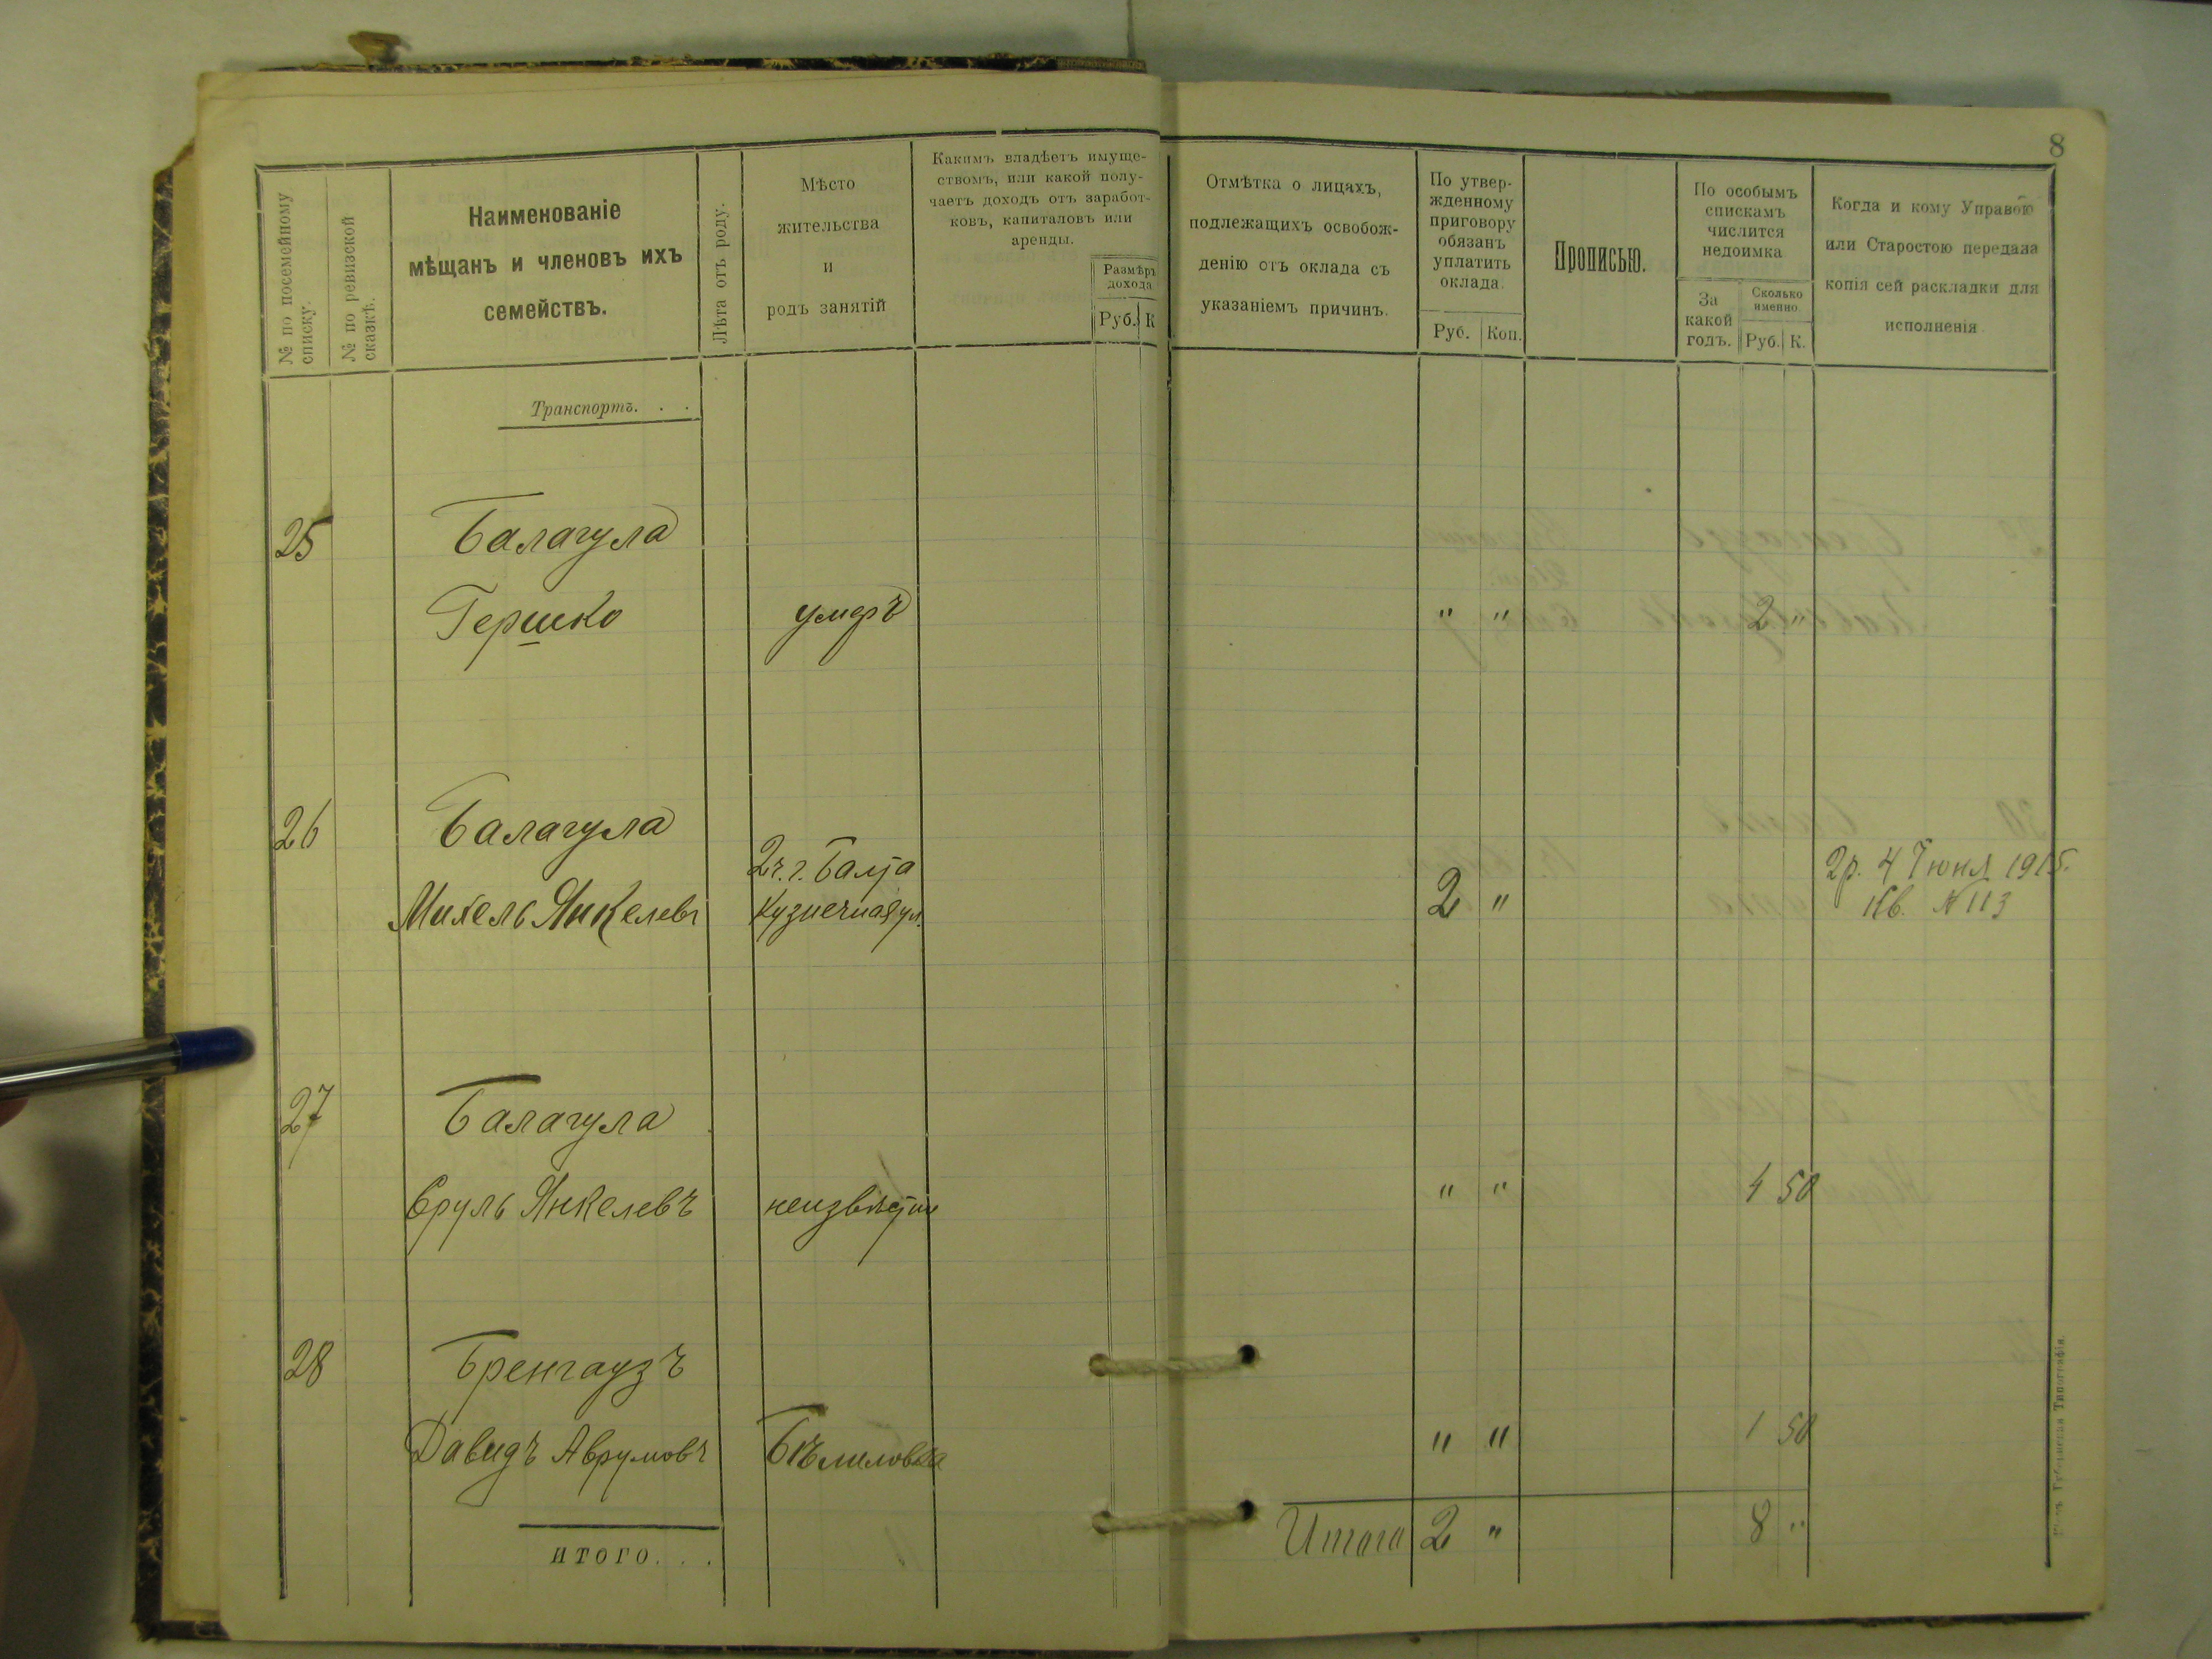 8
№ по посемейному списку.
№ по ревизской сказкѣ.
Наименованіе
мѣщанъ и членовъ ихъ
семействъ.
Лѣта отъ роду.
Мѣсто
жительства
и
родъ занятій
Какимъ владѣетъ имуще-
ствомъ, или какой полу-
чаетъ доходъ отъ заработ-
ковъ, капиталовъ или
аренды.
Размѣръ
дохода
Руб. К
Отмѣтка о лицахъ,
подлежащихъ освобож-
денію отъ оклада съ
указаніемъ причинъ.
По утвер-
жденному
приговору
обязанъ
уплатить
оклада.
Руб. Коп.
Прописью.
По особымъ
спискамъ
числится
недоимка
За
какой
годъ.
Сколько
именно.
Руб. К.
Когда и кому Управою
или Старостою передана
копія сей раскладки для
исполненія
Транспортъ. . .
25 Балагула
Гершко умеръ " " 2 "
26 Балагула
2 ч. г. Балта
2р. 4 Іюня 1915.
Михель Янкелевъ Кузнечная ул. 2 " Кв. № 113
27 Балагула
Сруль Янкелевъ неизвѣстно " " 4 50
28 Бренгаузъ
Давидъ Аврумовъ Бѣлиловка " " 1 50
ИТОГО. . .
Итого 2 " 8 "
Типографія.